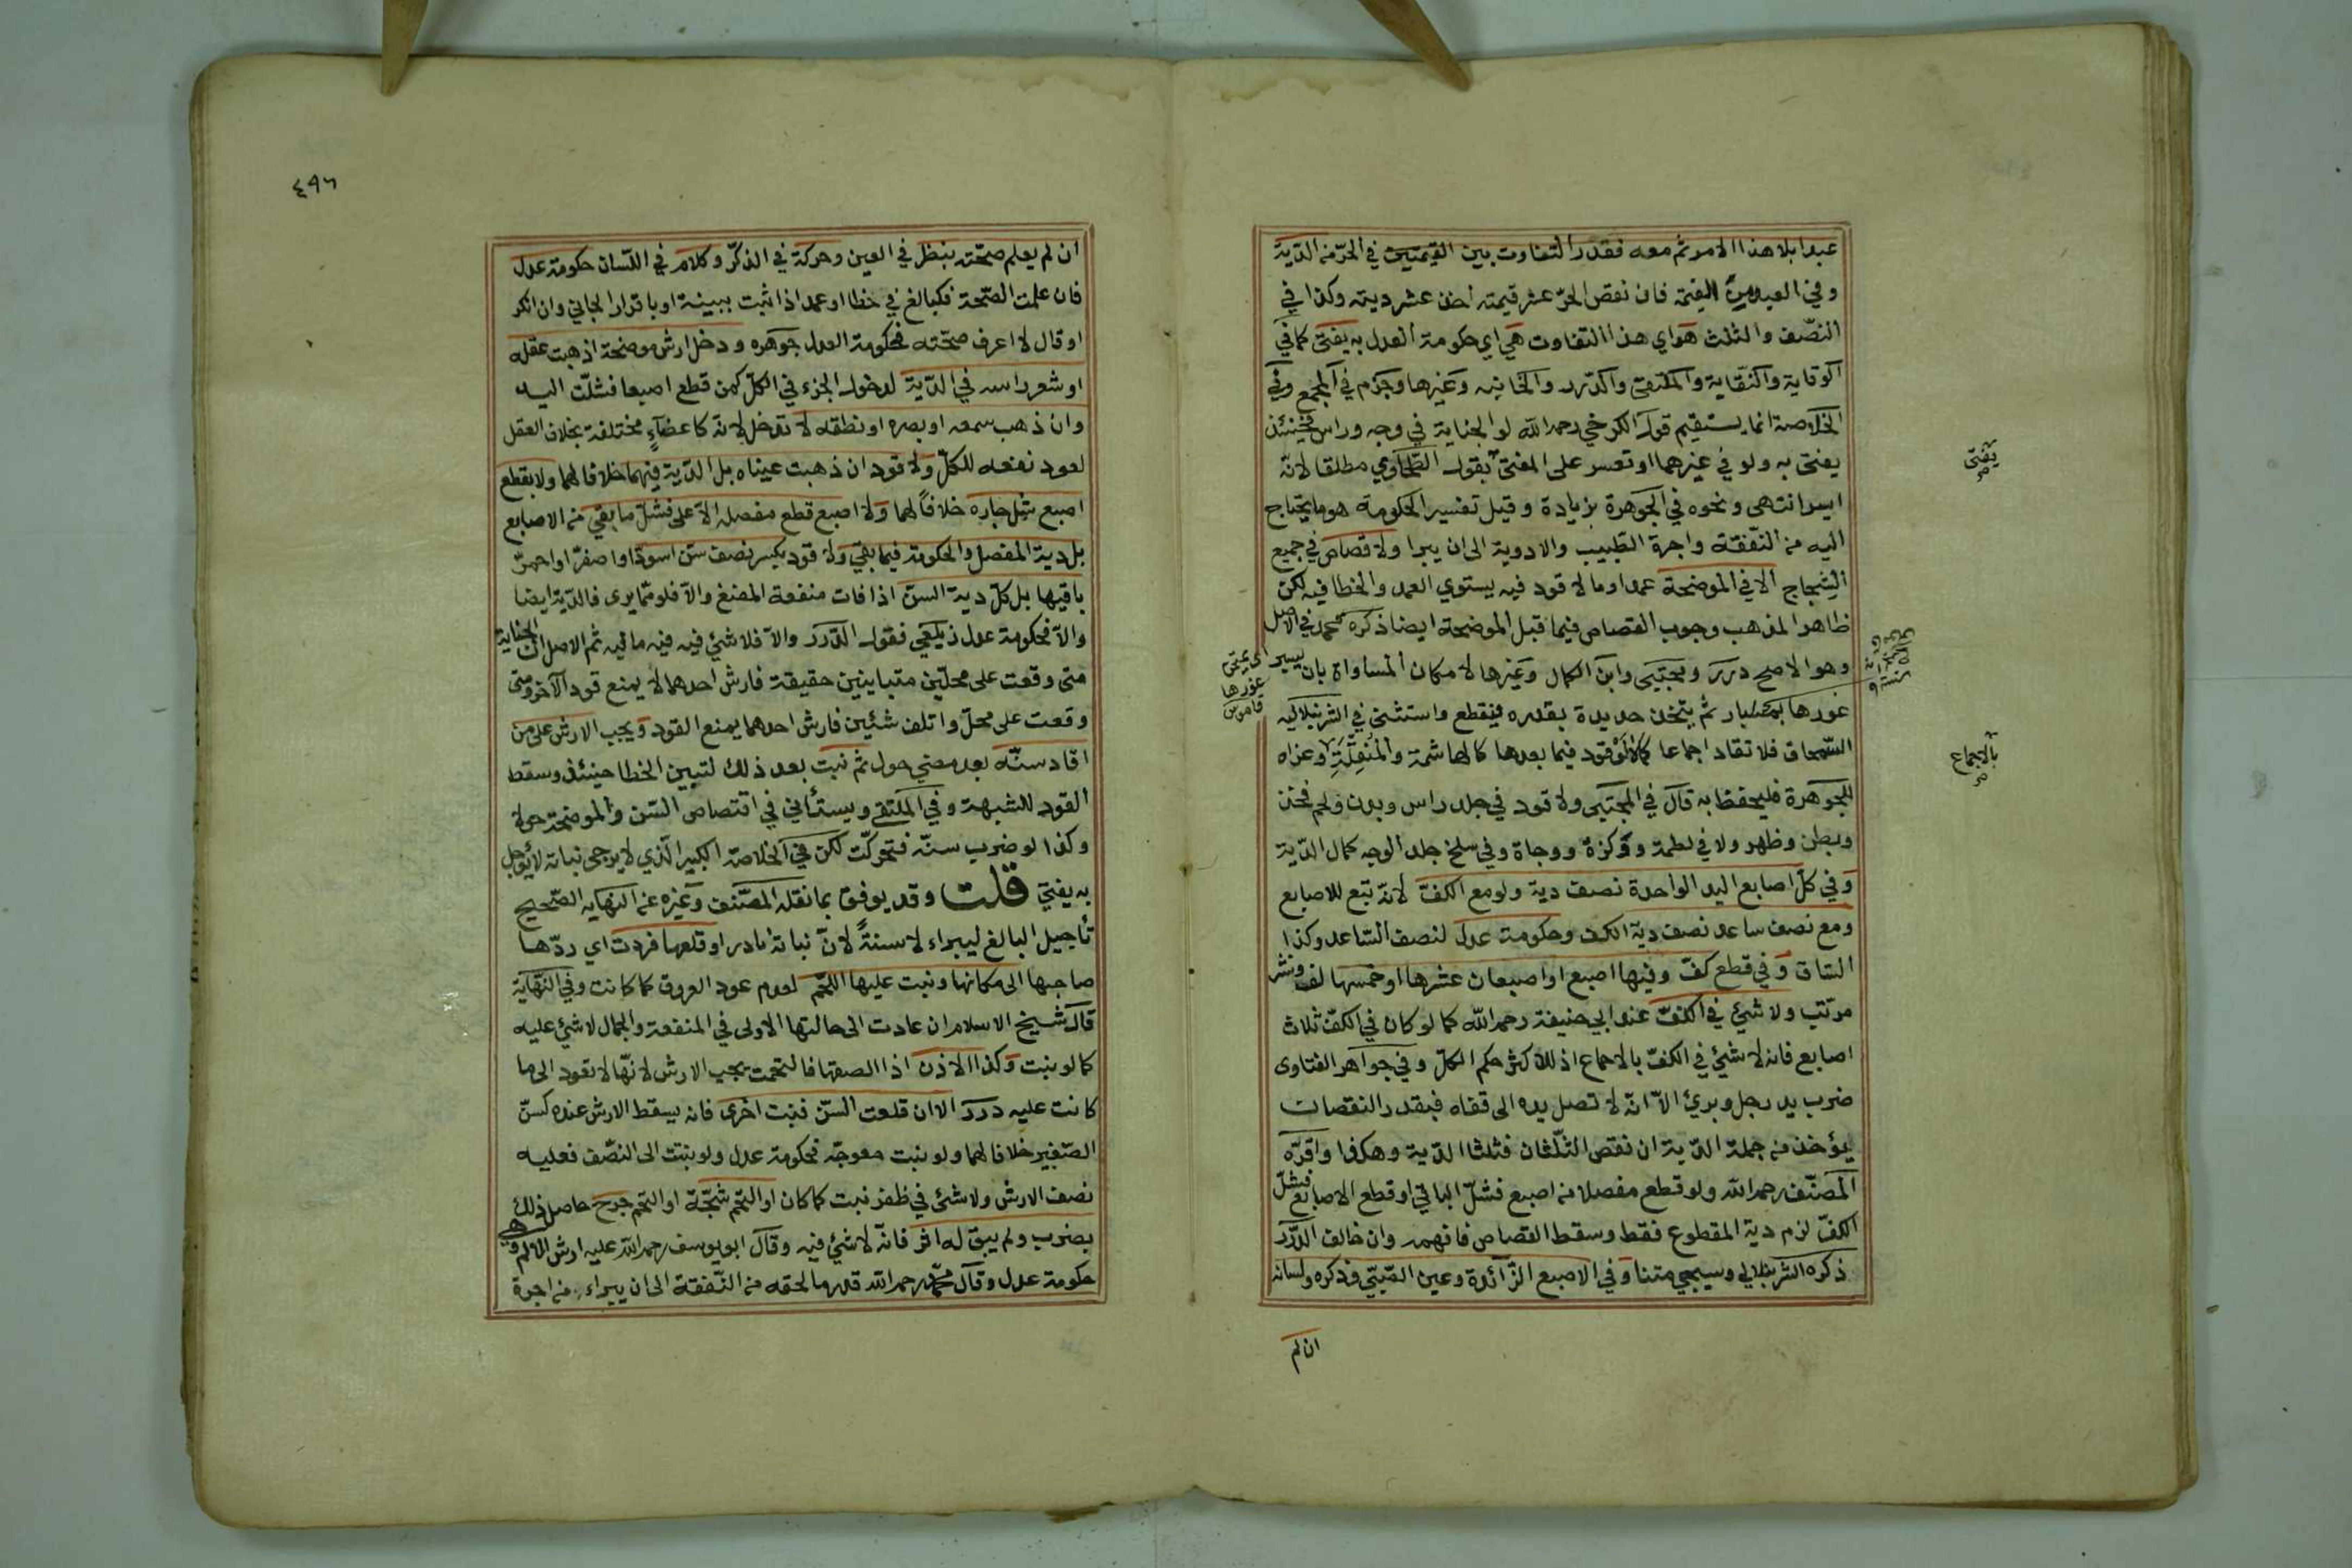 عبدا بلا هذا الامر ثم معه فقدر التفاوت بين القيمتين في الحرّ من الدّية
وفي العبد من القيمة فان نقص الحرّ عشر قيمته اخذ عشر ديته وكذا في
النّصف والثلث هو اي هذا التفاوت هي اي حكومة العدل به يفتى كما في
الوقاية والنّقاية والملتقى والدّرر والخانيه وغيرها وجزم في المجمع وفي
الخلاصة انما يستقيم قول الكرخي رحمه الله لو الجناية في وجه وراس فحينئذ
يفتى به ولو في غيرهما او تعسر على المفتى بقول الطّحاوي مطلقا لانّه
ايسر انتهى ونحوه في الجوهرة بزيادة وقيل تفسير الحكومة هو ما يحتاج
اليه من النّفقة واجرة الطّبيب والادوية الى ان يبرا ولا قصاص في جميع
الشجاج الا في الموضحة عمدا وما لا قود فيه يستوي العمد والخطا فيه لكن
ظاهر المذهب وجوب القصاص فيما قبل الموضحة ايضا ذكره محمد في الاصل
وهو الاصح درر ومجتبى وابن الكمال وغيرها لامكان المساواة بان يسبر
غورها بمسبار ثم يتخذ حديدة بقدره فيقطع واستثنى في الشرنبلاليه
السّمحاق فلا تقاد اجماعا كما لا قود فيما بعدها كالهاشمة والمنقّلة وعزاه
للجوهرة فليحفظ به قال في المجتبى ولا قود في جلد راس وبدن ولحم فخذ
وبطن وظهر ولا في لطمة ووكزة ووجاة وفي سلخ جلد الوجه كمال الدّية
وفي كلّ اصابع اليد الواحدة نصف دية ولو مع الكفّ لانّه تبع للاصابع
ومع نصف ساعد نصف دية الكف وحكومة عدل لنصف السّاعد وكذا
السّاق وفي قطع كفّ وفيها اصبع او اصبعان عشرها او خمسها لف ونشر
مرتب ولا شيئ في الكفّ عند ابي حنيفة رحمه الله كما لو كان في الكفّ ثلاث
اصابع فانه لا شيئ في الكفّ بالاجماع اذ للاكثر حكم الكلّ وفي جواهر الفتاوى
ضرب يد رجل وبرئ الاّ انّه لا تصل يده الى قفاه فبقدر النقصان
يؤخذ من جملة الدّية ان نقص الثّلثان فثلثا الدّية وهكذا واقرّه
المصنّف رحمه الله ولو قطع مفصلا من اصبع فشلّ الباقي او قطع الاصابع فشلّ
الكفّ لزم دية المقطوع فقط وسقط القصاص فافهم وان خالف الدّرر
ذكره الشرنبلالي وسيجي متنا وفي الاصبع الزّائدة وعين الصّبيّ وذكره ولسانه
ان لم
يفتى
بالاجماع
اى يمتحن
غورها
قاموس
٤٩٦
ان لم يعلم صحّته بنظر في العين وحركة في الذكّر وكلام في اللّسان حكومة عدل
فان علمت الصّحة فكبالغ في خطا او عمد اذا ثبت ببينة او باقرار الجاني وان انكر
او قال لا اعرف صحّته فحكومة العدل جوهره ودخل ارش موضحة اذهبت عقله
او شعر راسه في الدّية لدخول الجزء في الكلّ كمن قطع اصبعا فشلّت اليد
وان ذهب سمعه او بصره او نطقه لا تدخل لانه كاعضآءٍ مختلفة بخلاف العقل
لعود نفعه للكلّ ولا قود ان ذهبت عيناه بل الدّية فيهما خلافا لهما ولا بقطع
اصبع شل جاره خلافاً لهما ولا اصبع قطع مفصله الاعلى فشلّ ما بقي من الاصابع
بل دية المفصل والحكومة فيما بقي ولا قود بكسر نصف سنّ اسودّ او اصفرّ او احمرّ
باقيها بل كلّ دية السنّ اذا فات منفعة المضغ والاّ فلو ممّا يرى فالدّية ايضا
والاّ فحكومة عدل زيلعي فقول الدّرر والاّ فلا شيئ فيه فيه ما فيه ثم الاصل انّ الجناية
متى وقعت على محلّين متباينين حقيقة فارش احدهما لا يمنع قود الآخر ومتى
وقعت على محلّ واتلف شئين فارش احدهما يمنع القود ويجب الارش على من
اقاد سنّه بعد مضي حول ثم نبت بعد ذلك لتبين الخطا حينئذ وسقط
القود للشبهة وفي الملتقى ويستأني في اقتصاص السّن والموضحة حولا
وكذا لو ضرب سنّه فتحركّت لكن في الخلاصة الكبير الّذي لا يرجى نباته لا يؤجل
به يفتي قلت وقد يوفق بما نقله المصّنف وغيره عن النهايه الصّحيح
تأجيل البالغ ليبراء لا سنةً لانّ نباته نادر او قلعها فردت اي ردّها
صاحبها الى مكانها ونبت عليها اللّحم لعدم عود العروق كما كانت وفي النّهاية
قال شيخ الاسلام ان عادت الى حالتها الاولى في المنفعة والجمال لا شيئ عليه
كما لو نبت وكذا الاذن اذا الصقها فالتحمت يجب الارش لانّها لا تعود الى ما
كانت عليه درر الا ان قلعت السّن فنبت اخرى فانه يسقط الارش عنده كسنّ
الصّغير خلافا لهما ولو نبت معوجّه فحكومة عدل ولو نبتت الى النّصف فعليه
نصف الارش ولا شئ في ظفر نبت كما كان او التحم شجّة او التحم جرح حاصل ذلك
بضرب ولم يبق له اثر فانّه لا شيئ فيه وقال ابو يوسف رحمه الله عليه ارش الالم وهي
حكومة عدل وقال محمّد رحمه الله قدر ما لحقه من النّفقة الى ان يبراء من اجرة